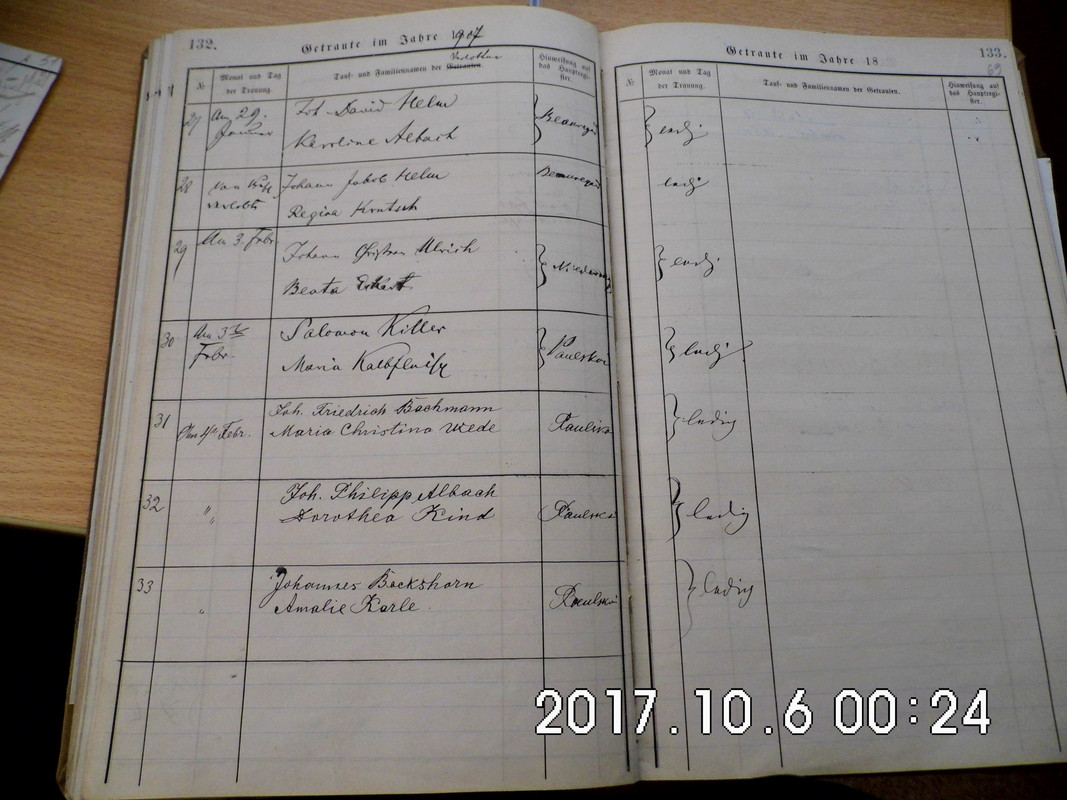 132.
Getraute im Jahre 1907
Verlobten
№
Monat und Tag
der Trauung.
Tauf- und Familiennamen der Getrauten.
Hinweisung auf
das Hauptregi-
ster.
27
Am 29.
Januar
Joh. David Helm
Karoline Albach
Beauregard
28
verlobte
Johann Jakob Helm
Regina Krutsch
Beauregard
29
Am 3. Febr.
Johann Christian Ulrich
Beata
30
Am 3ten
Febr.
Salomon Killer
Maria Kalbfleisch
Paulskoi
31
Am 4ten Febr.
Joh. Friedrich Bachmann
Maria Christina Wede
32
"
Joh. Philipp Albach
Dorothea Kind
Paulskoi
33
"
Johannes Bockshorn
Amalie Karle
Paulskoi
133.
69
Getraute im Jahre 18
№
Monat und Tag
der Trauung.
Tauf- und Familiennamen der Getrauten.
Hinweisung auf
das Hauptregi-
ster.
ledig
ledig
ledig
ledig
ledig
ledig
ledig
2017.10.6 00:24